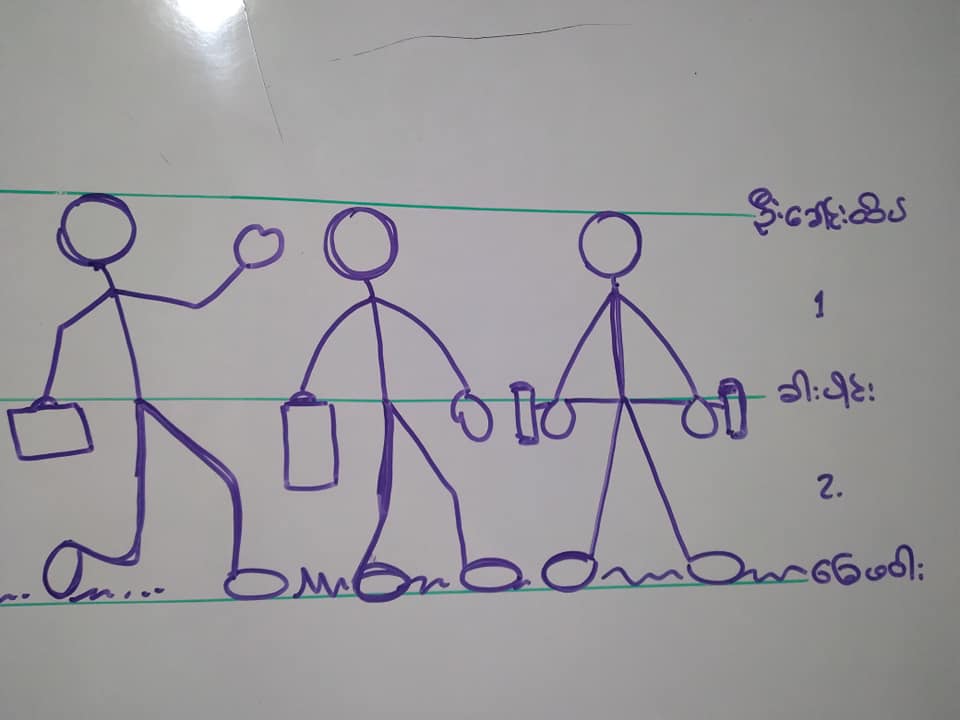 ဦးခေါင်းထိပ်
1
ခါးပိုင်း
2.
ခြေဖဝါး